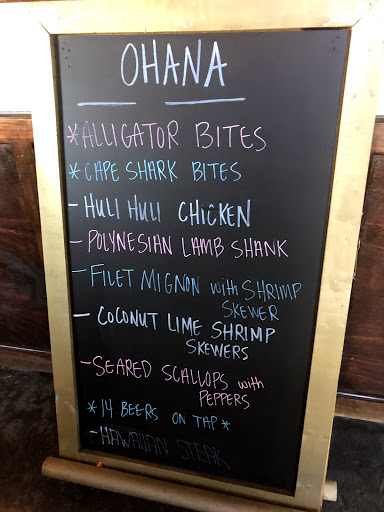 OHANA
*ALLIGATOR BITES
*CAPE SHARK BITES
- HULI HULI CHICKEN
- POLYNESIAN LAMB SHANK
- FILET MIGNON with SHRIMP
SKEWER
- COCONUT LIME SHRIMP
SKEWERS
- SEARED SCALLOPS with
PEPPERS
*14 BEERS ON TAP*
- HAWAIIAN STEAK